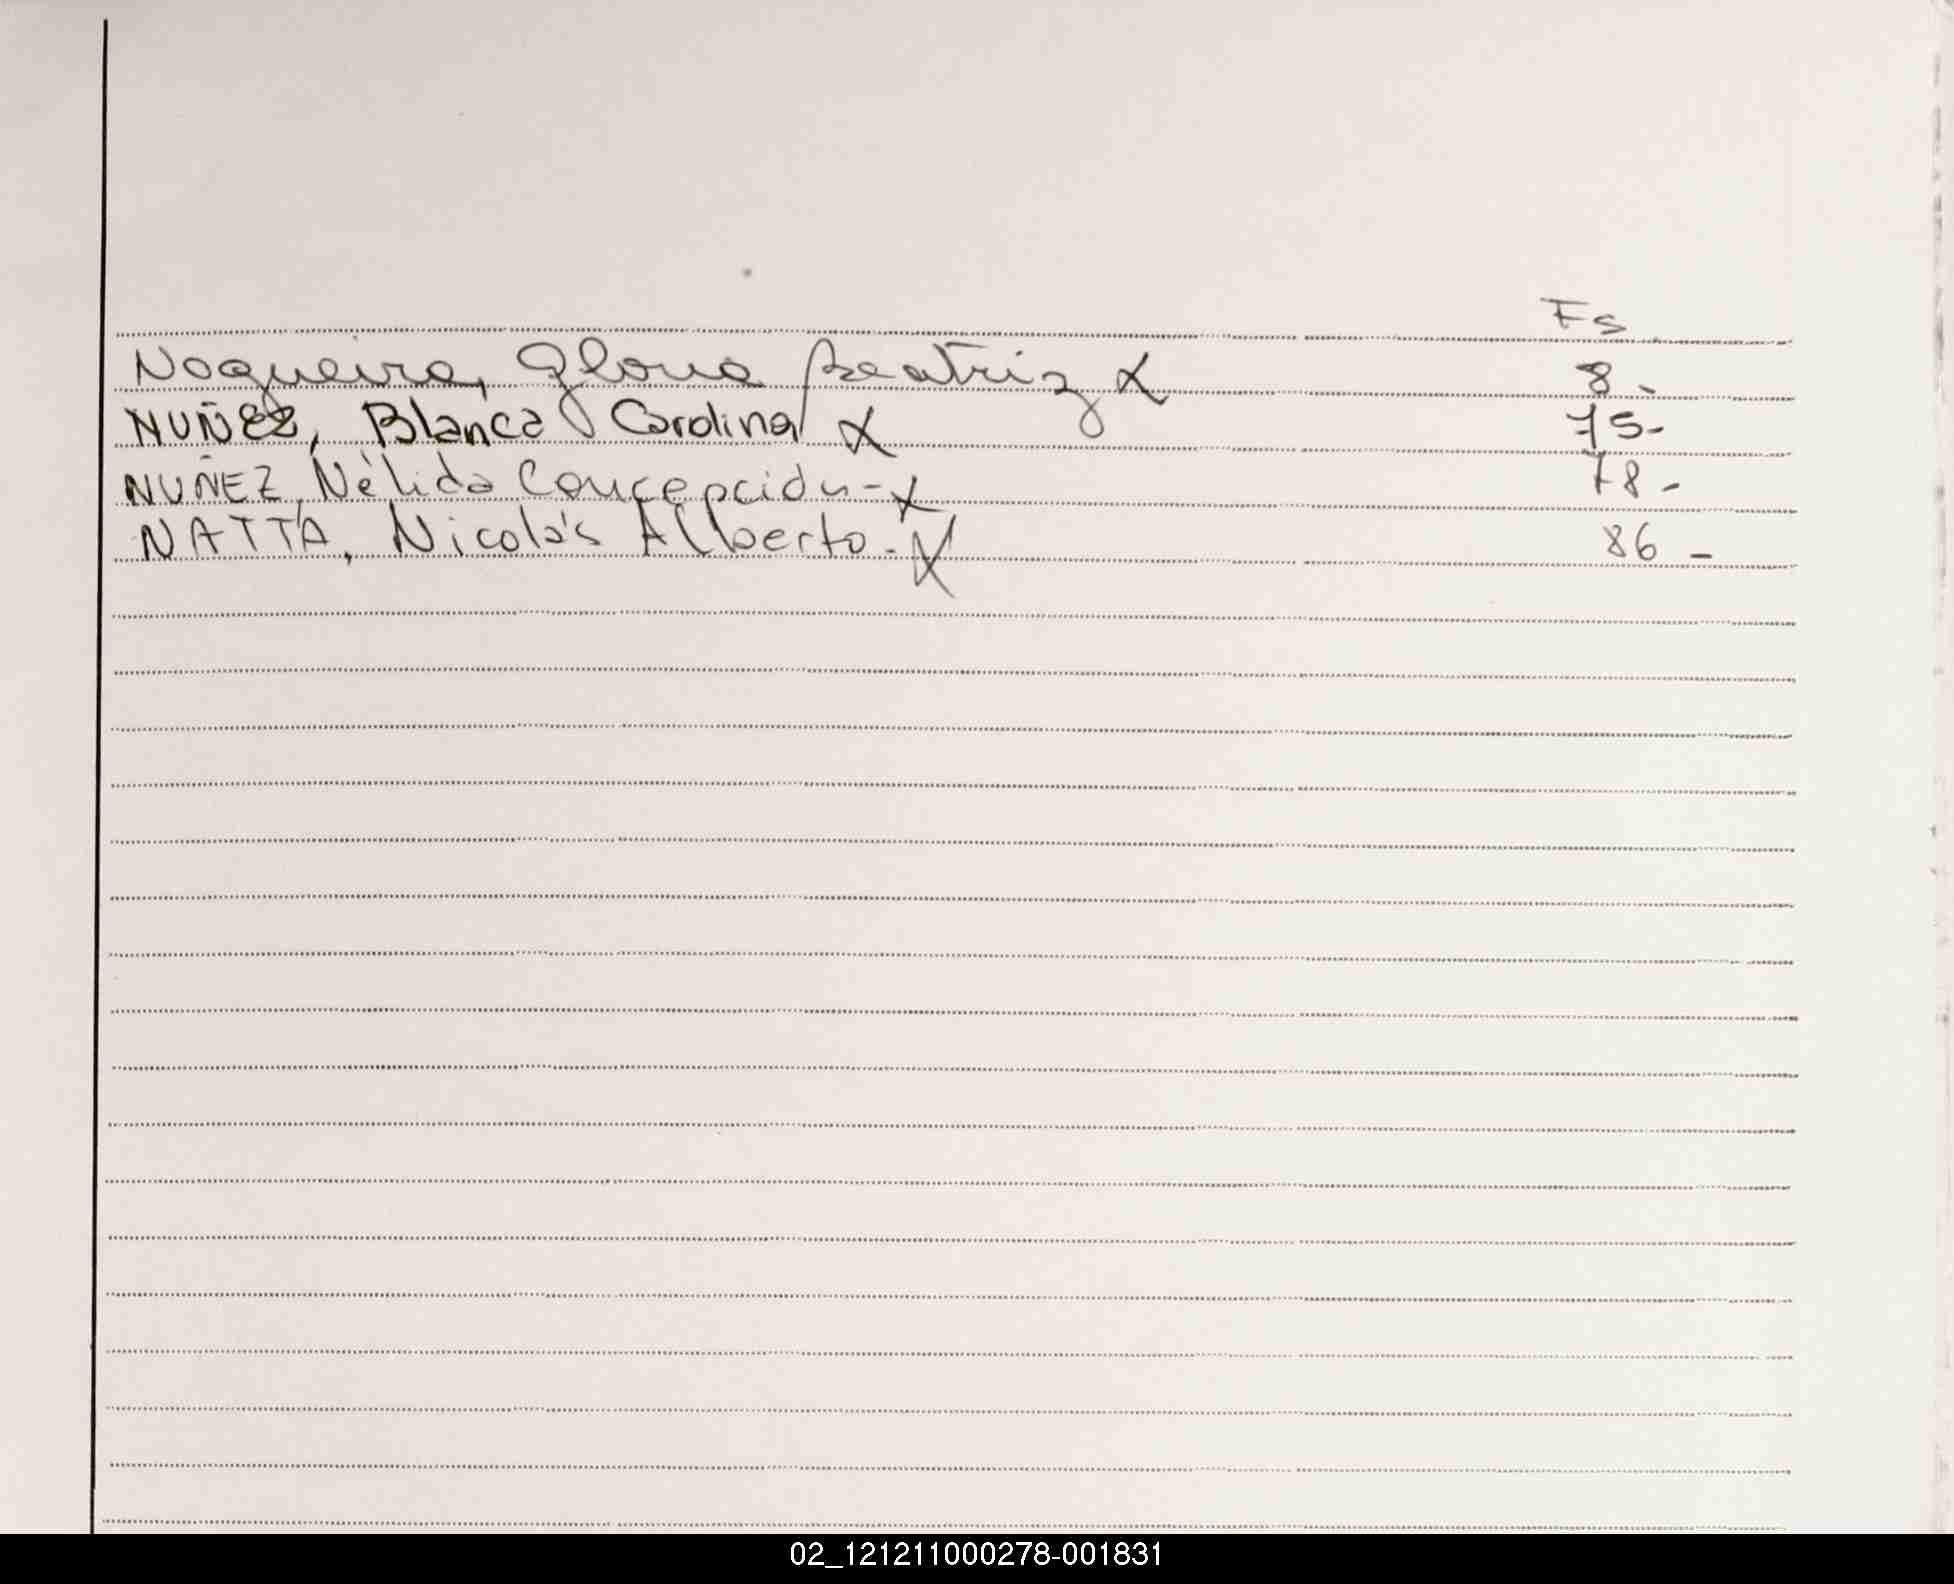 Fs
Nogueira, Gloria Beatriz X 8-
NUÑEZ, Blanca Carolina X 75-
NUÑEZ, Nélida Concepción- X 78-
NATTA, Nicolás Alberto- X 86-
02_121211000278-001831